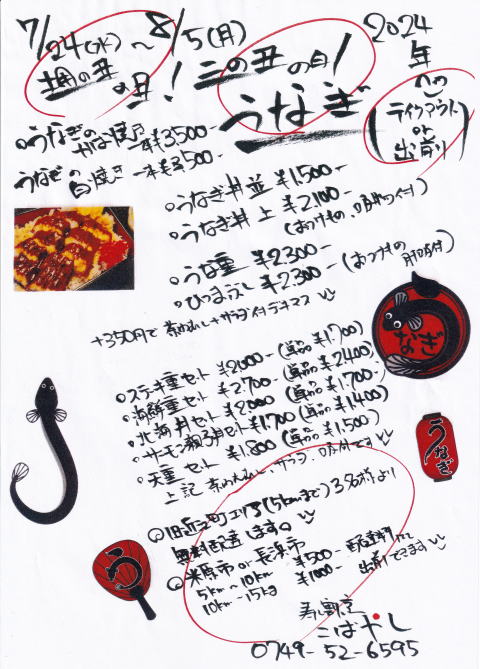 2024年
7/24(水)～8/5(月)
土用の丑の日！二の丑の日！
うなぎ
(テイクアウト or 出前り)
うなぎのかば焼き 一本¥3500-
うなぎの白焼き 一本¥3500-
うなぎ丼 並 ¥1,500-
うなぎ丼 上 ¥2100-
(おつけもの、吸物付)
うな重 ¥2300-
ひつまぶし ¥2300-
(おつけもの 肝吸付)
+350円で 茶わんむし+サラダ付デキマス
ステキ重セット ¥2000-(単品¥1,700)
海鮮重セット ¥2700-(単品¥2400)
北海丼セット ¥2000(単品¥1,700-
サーモン親子丼セット ¥1700(単品¥1400)
天重セット ¥1,800(単品¥1,500)
上記 茶わんむし、サラダ、吸付です
旧近江町エリア(5kmまで)3名様より
無料配達します。
米原市or長浜市
5km～10km ¥500-
10km～15km ¥1000-
出前できます
寿し割烹
こばやし
0749-52-6595
なぎ
うなぎ
う